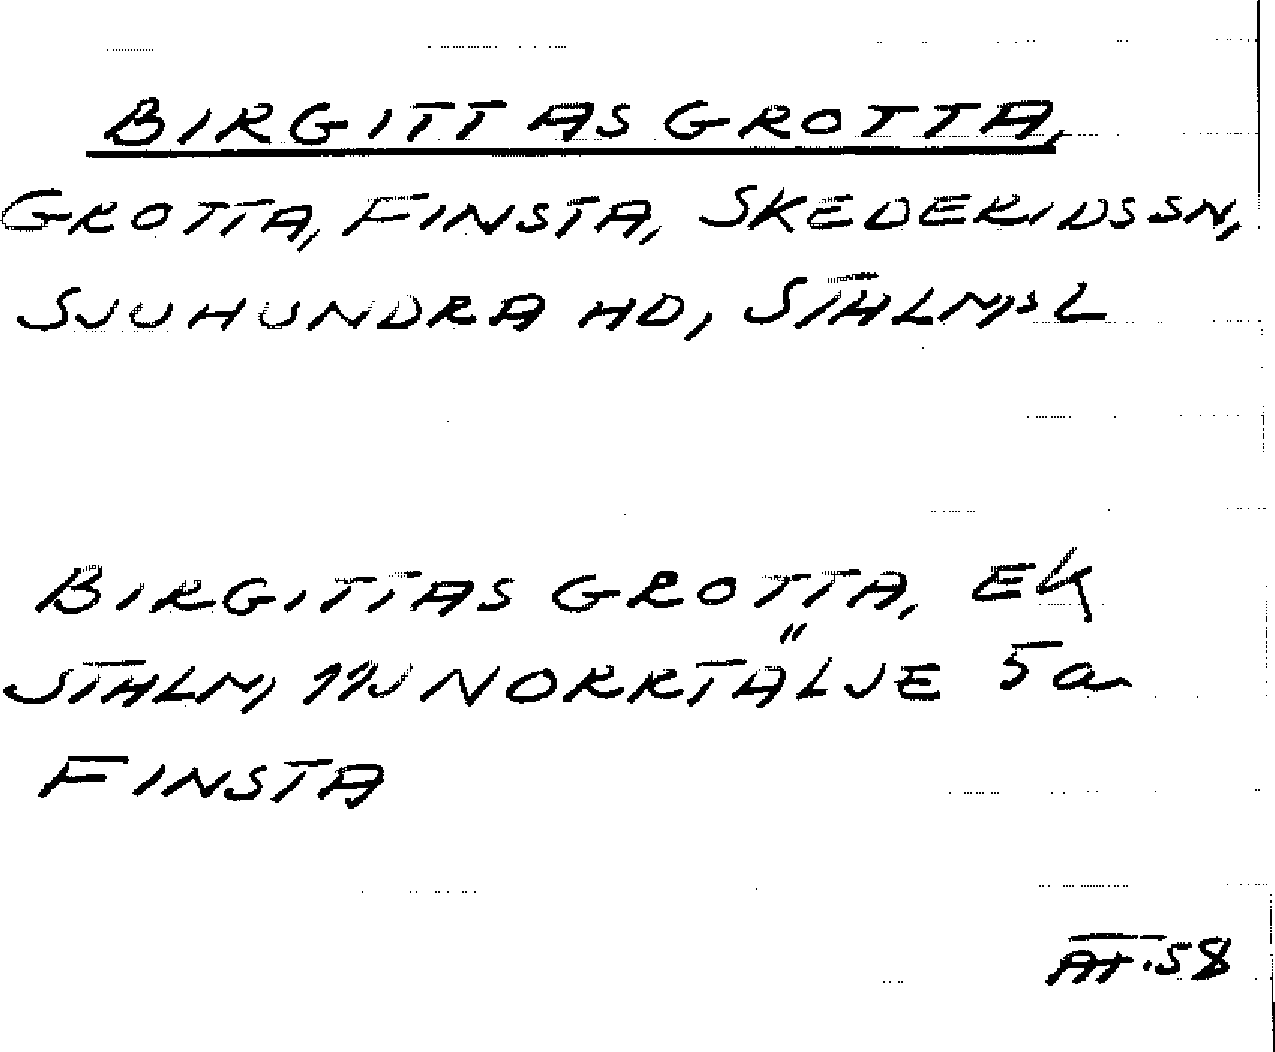 BIRGITTAS GROTTA,
GROTTA, FINSTA, SKEDERIDS SN,
SJUHUNDRA HD, STHLMS L
BIRGITTAS GROTTA, EK
STHLM, 11J NORRTÄLJE 5a
FINSTA
AT.58